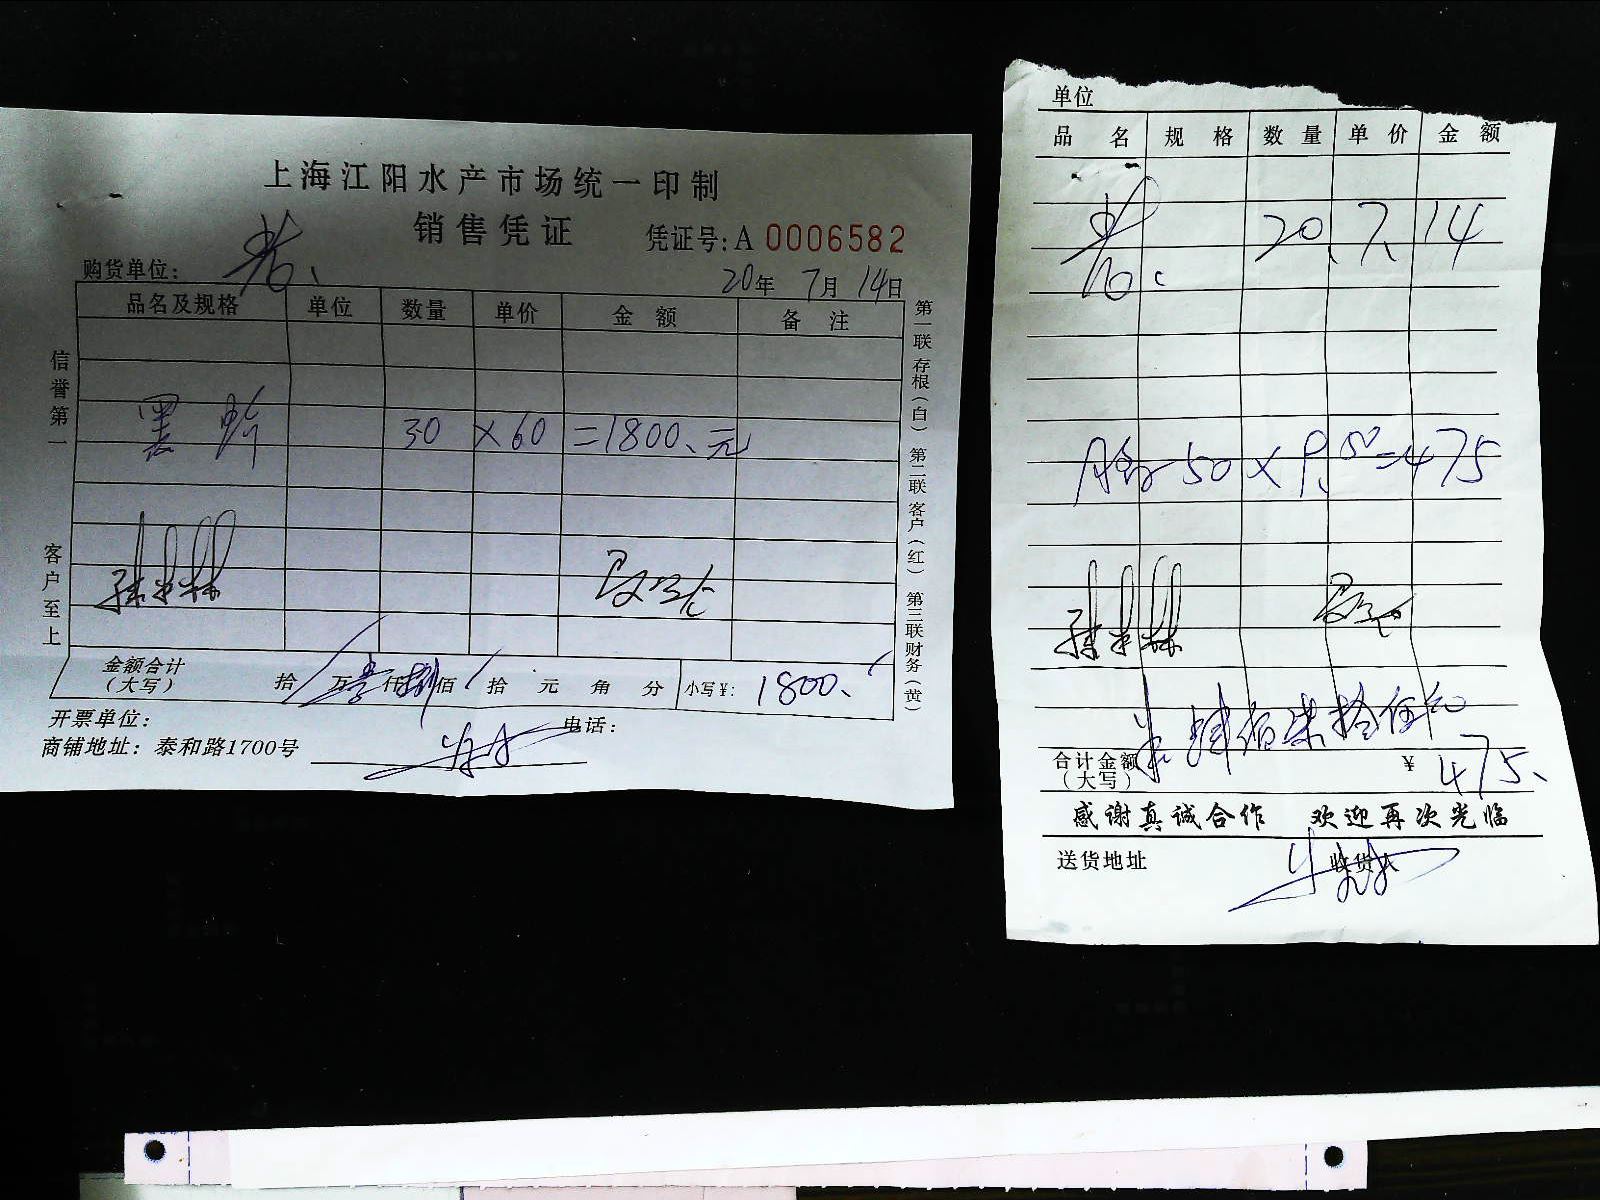 上海江阳水产市场统一印制
销售凭证
凭证号: A 0006582
购货单位:
20年 7月 14日
品名及规格 单位 数量 单价 金额 备注
30 × 60 =1800、元
金额合计
(大写)
拾 万 壹仟 捌佰 拾 元 角 分 小写¥: 1800、
开票单位: 电话:
商铺地址: 泰和路1700号
信誉第一 客户至上
第一联存根(白) 第二联客户(红) 第三联财务(黄)
单位
品名 规格 数量 单价 金额
20、7、14
50 × 9.5=475
肆佰柒拾伍元
合计金额 ¥ 475、
(大写)
感谢真诚合作 欢迎再次光临
送货地址 收货人